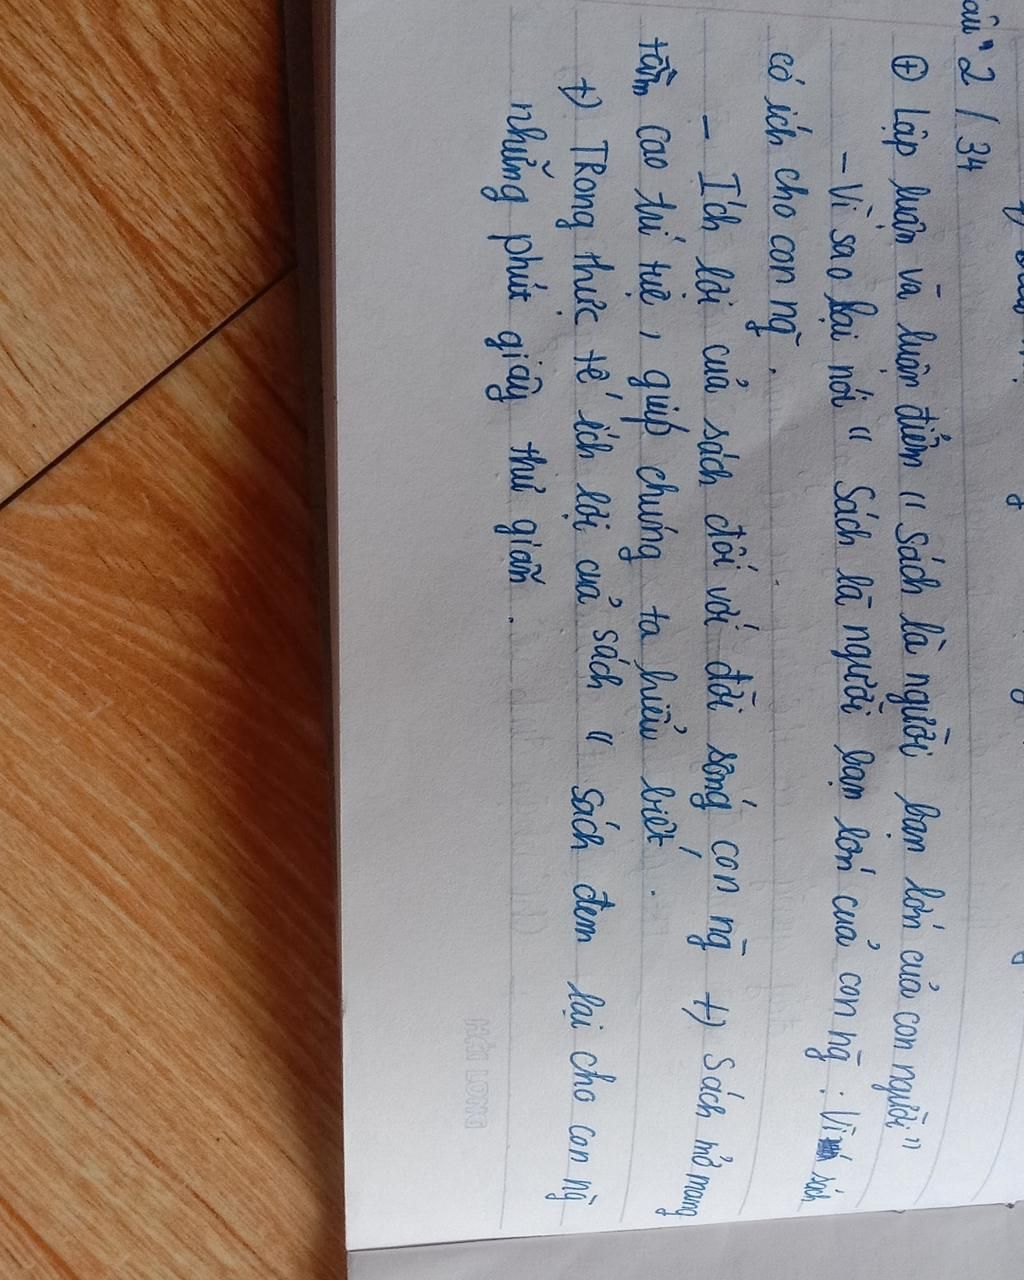 câu 2 / 34
⊕ Lập luận và luận điểm " Sách là người bạn lớn của con người "
– Vì sao lại nói " Sách là người bạn lớn của con ng̀ . Vì sách
có ích cho con ng̀ .
– Ích lợi của sách đối với đời sống con ng̀ +) Sách mở mang
tầm cao trí tuệ , giúp chúng ta hiểu biết .
+) TRong thực tế ích lợi của sách " sách đem lại cho con ng̀
những phút giây thư giãn .
HẢI LONG